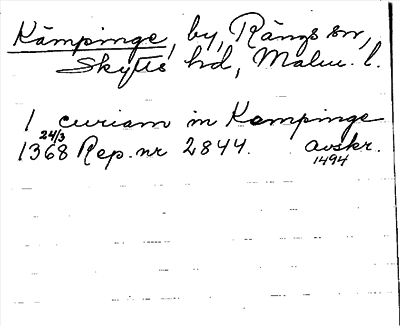 Kämpinge, by, Rängs sn,
Skytts hd, Malm. l.
1 curiam in Kempinge
24/3
1368 Rep. nr 2844. avskr.
1494